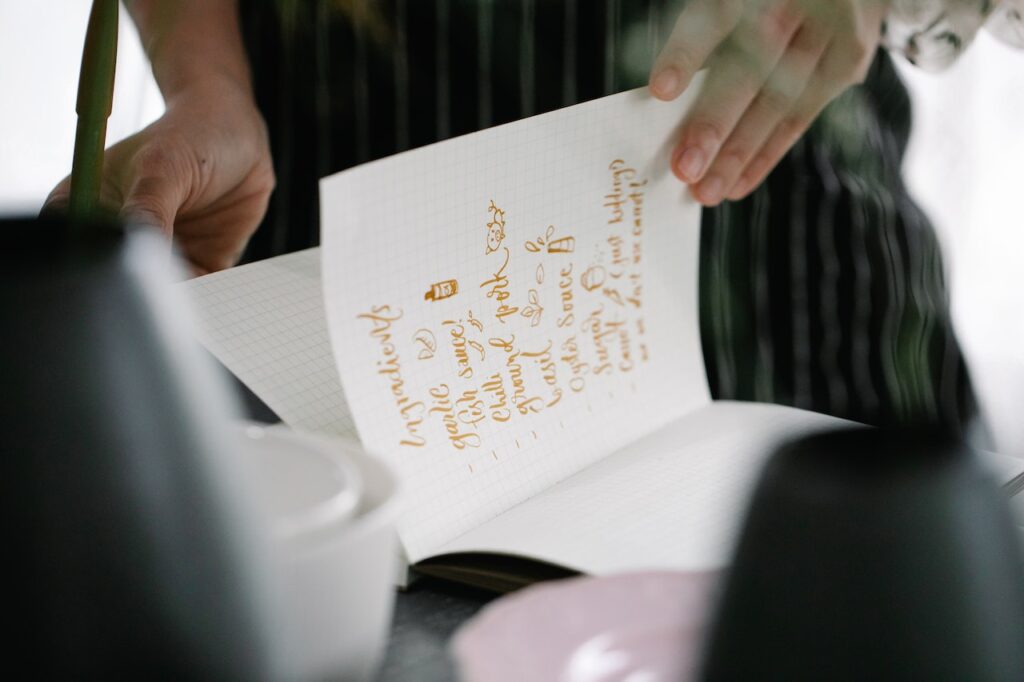 Ingredients
- garlic
- fish sauce!
- chilli
- ground pork
- basil
- Oyster Sauce
- Sugar
- Carrot (just kidding)
we don't use carrot!